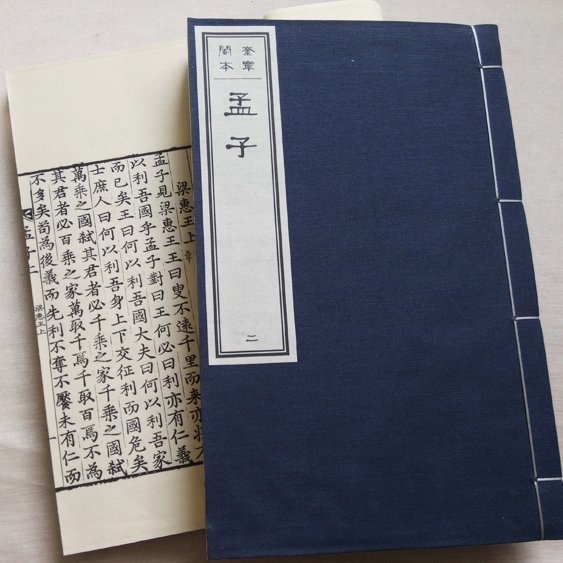 奎章
閣本
孟子
二
梁惠王上
孟子見梁惠王王曰叟不遠千里而來亦將
以利吾國乎孟子對曰王何必曰利亦有仁義
而已矣王曰何以利吾國大夫曰何以利吾家
士庶人曰何以利吾身上下交征利而國危矣
萬乘之國弒其君者必千乘之家千乘之國弒
其君者必百乘之家萬取千焉千取百焉不為
不多矣苟為後義而先利不奪不饜未有仁而
孟子
梁惠王上